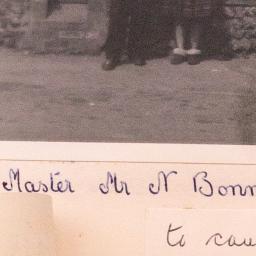 Master Mr N Bonn
to cau